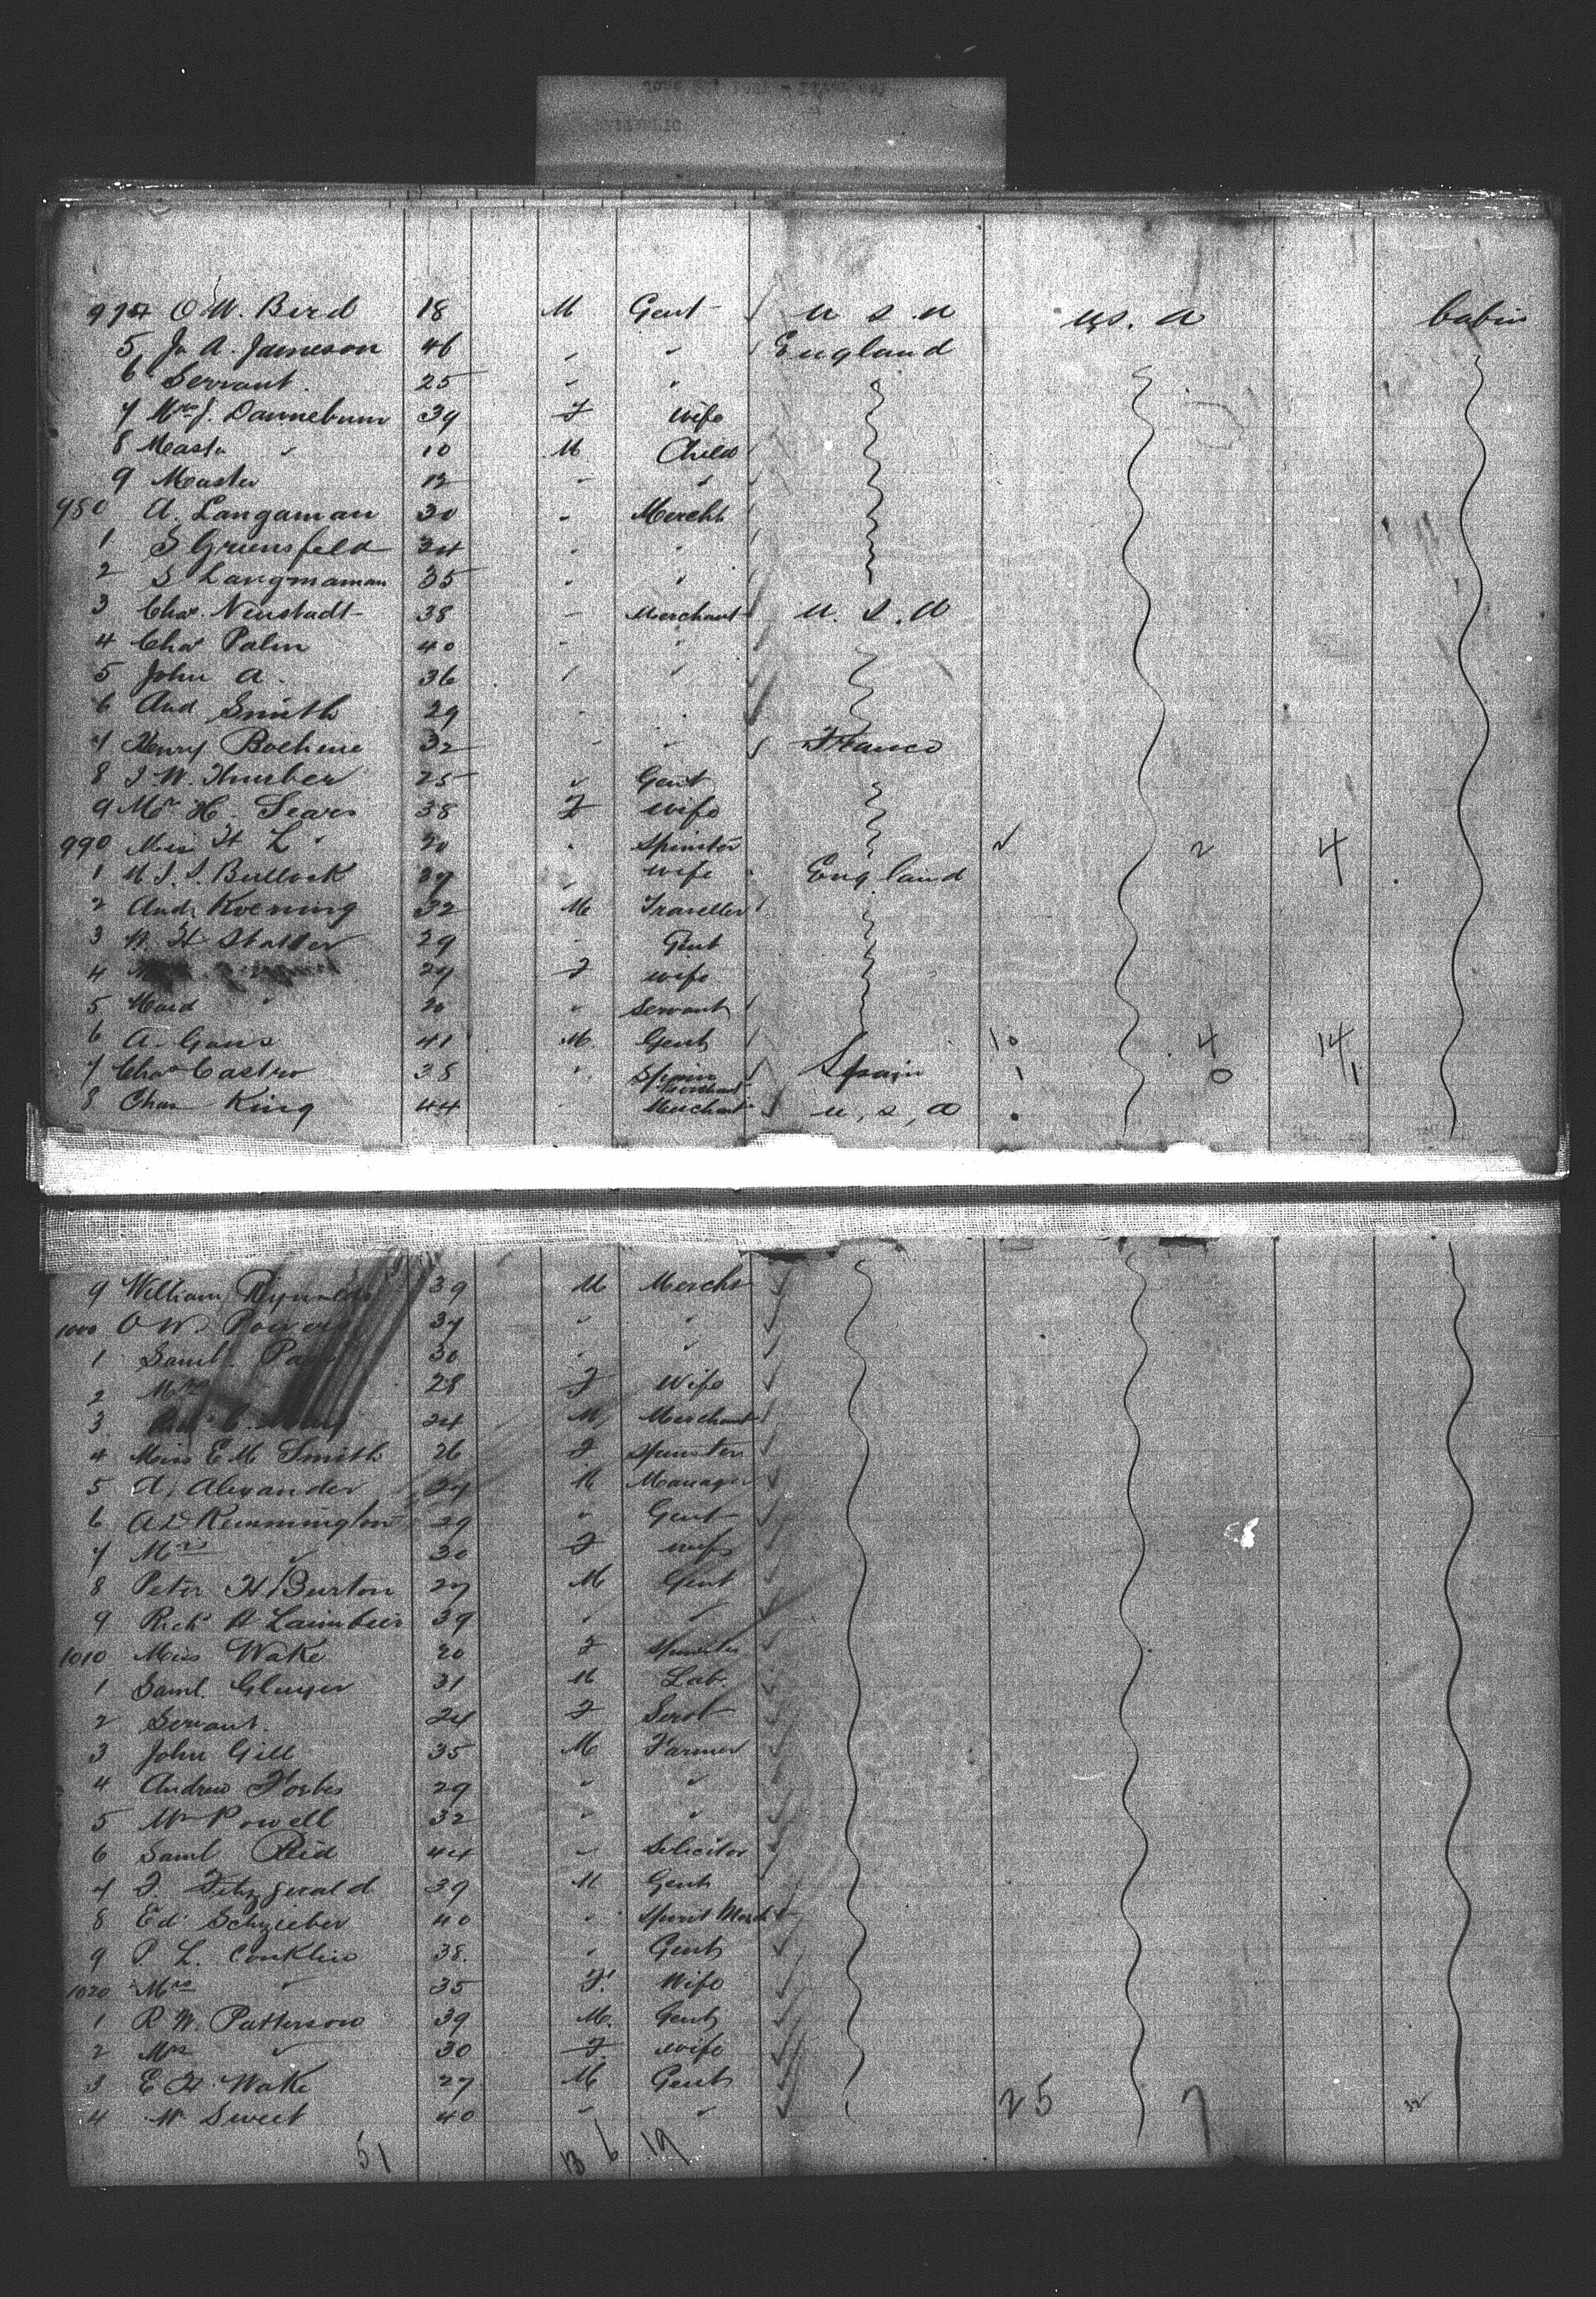 974 O. W. Bird 18 M Gent u s a us. a cabin
5 Js A. Jameson 46 " " England
6 Servant. 25 " "
7 Mrs J. Dannebum 39 F wife
8 Mastr " 10 M Child
9 Master 12 " "
980 A. Langaman 30 " Mercht
1 S Griensfeld 34 " "
2 S Langmaman 35 " "
3 Chas. Neustadt 38 " Merchant u. s. a
4 Chas Palm 40 " "
5 John A. 36 " "
6 And Smith 29 " "
7 Henry Boehme 32 " " France
8 J. W. Thurber 25 " Gent
9 Mrs H. Sears 38 F wife
990 Miss H L " 20 " Spinster 2 4
1 M J. S. Bullock 37 " wife England
2 Andr Koening 32 M Traveller
3 W. H Statter 29 " Gent
4 29 F wife
5 Maid " 20 " Servant
6 A. Gans 41 M. Gent 10 4 14
7 Chas Castro 38 " Spain Merchant Spain 1 0 1
8 Chas King 44 " Merchant u, s, a
9 William Reynolds 39 M Mercht
1000 O W. Powers 37 " "
1 Saml. 30 " "
2 Mrs 28 F Wife
3 24 M, Merchant
4 Miss E M Smith 26 F. Spinster
5 A, Alexander 24 M Manager
6 A D Remmington 29 " Gent
7 Mrs " 30 F wife
8 Peter H Burton 27 M Gent
9 Richd A Laimbeir 39 " "
1010 Miss Wake 20 F Spinster
1 Saml. Gluyer 31 M Lab.
2 Servant. 24 F Servt
3 John Gill 35 M Farmer
4 Andrew Forbes 29 " "
5 Wm Powell 32 " "
6 Saml Reid 44 " Solicitor
7 F. Fitzgerald 39 M Gent
8 Ed. Schzieber 40 " Spirit Mercht
9 P. L. Conklin 38. " Gent
1020 Mrs " 35 F. Wife
1 R. W. Patterson 39 M. Gent
2 Mrs " 30 F. wife
3 E H. Wake 27 M Gent 25 7 32
4 W. Sweet 40 " "
51 13 6 19